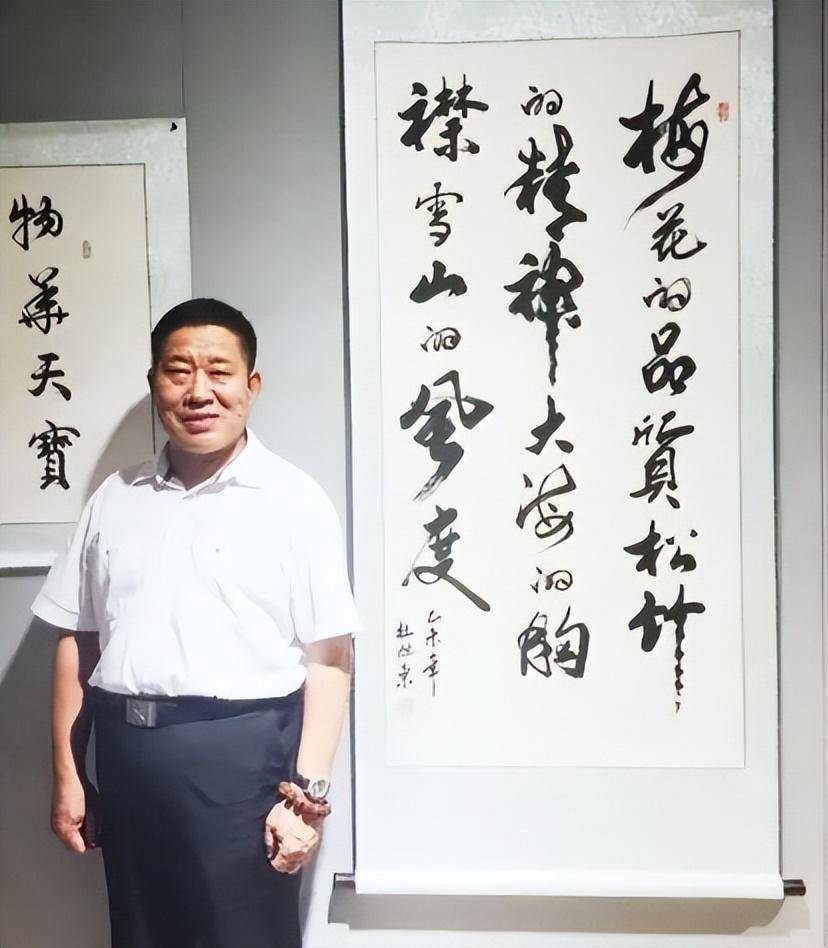 梅花的品質松竹
的精神大海的胸
襟雪山的風度
乙未年
物華天寶